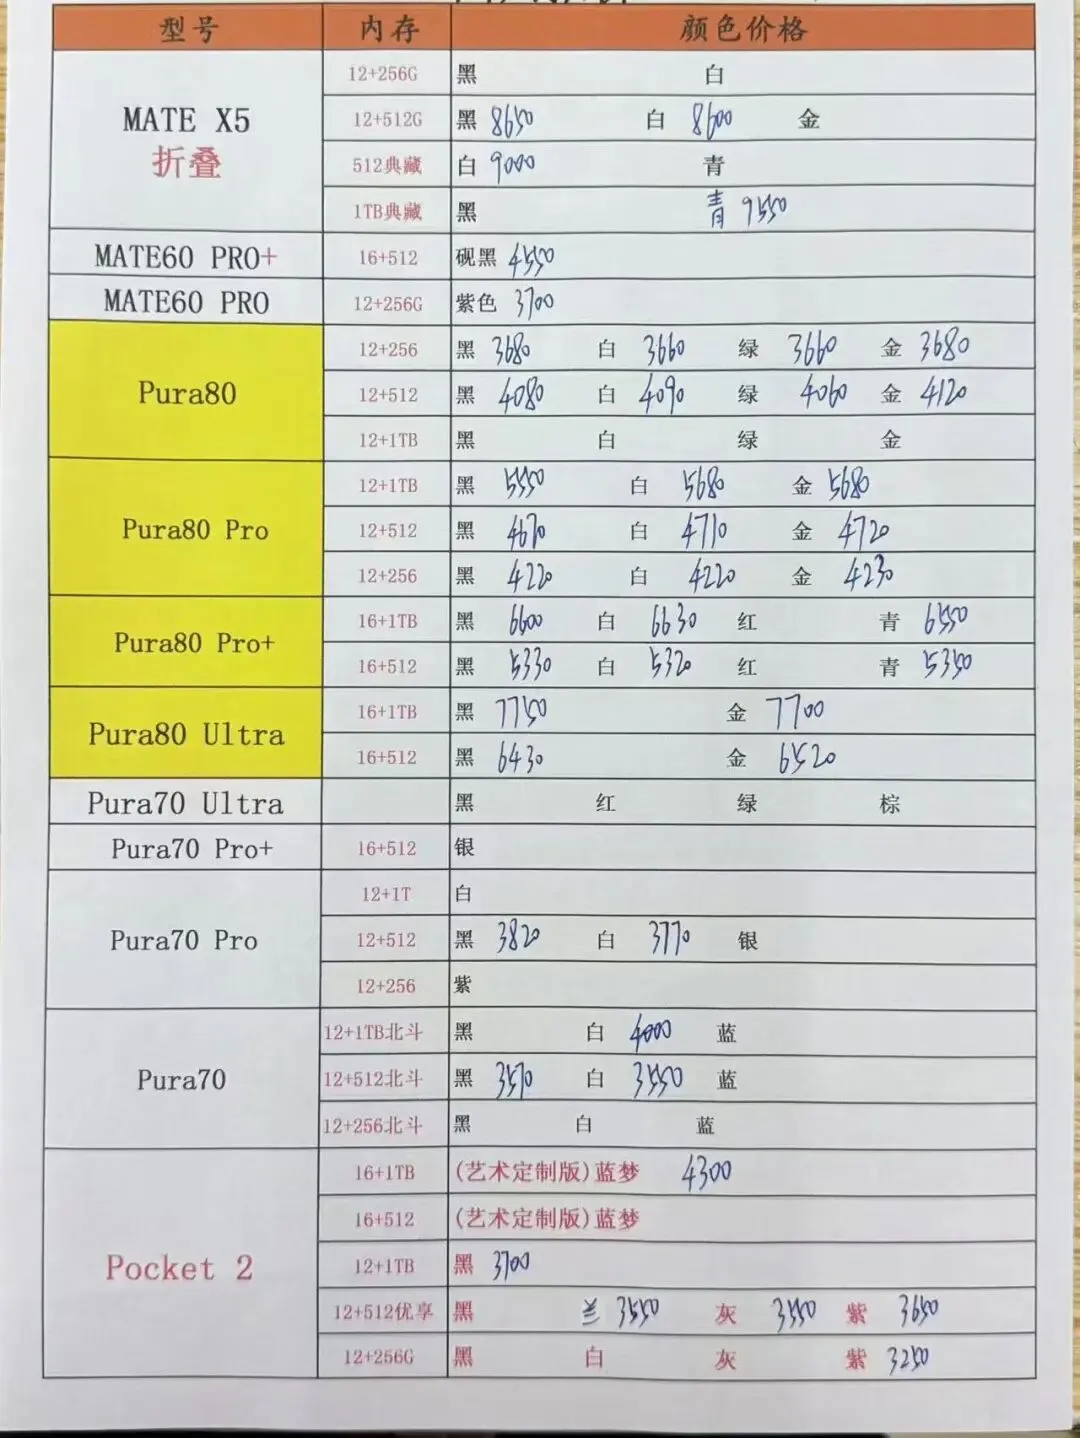 型号 内存 颜色价格
MATE X5 折叠
12+256G 黑 白
12+512G 黑 8650 白 8600 金
512典藏 白 9000 青
1TB典藏 黑 青 9550
MATE60 PRO+ 16+512 砚黑 4550
MATE60 PRO 12+256G 紫色 3700
Pura80
12+256 黑 3680 白 3660 绿 3660 金 3680
12+512 黑 4080 白 4090 绿 4060 金 4120
12+1TB 黑 白 绿 金
Pura80 Pro
12+1TB 黑 5550 白 5680 金 5680
12+512 黑 4670 白 4710 金 4720
12+256 黑 4220 白 4220 金 4230
Pura80 Pro+
16+1TB 黑 6600 白 6630 红 青 6550
16+512 黑 5330 白 5320 红 青 5350
Pura80 Ultra
16+1TB 黑 7750 金 7700
16+512 黑 6430 金 6520
Pura70 Ultra 黑 红 绿 棕
Pura70 Pro+ 16+512 银
Pura70 Pro
12+1T 白
12+512 黑 3820 白 3770 银
12+256 紫
Pura70
12+1TB北斗 黑 白 4000 蓝
12+512北斗 黑 3570 白 3550 蓝
12+256北斗 黑 白 蓝
Pocket 2
16+1TB (艺术定制版)蓝梦 4300
16+512 (艺术定制版)蓝梦
12+1TB 黑 3700
12+512优享 黑 兰 3550 灰 3550 紫 3650
12+256G 黑 白 灰 紫 3250